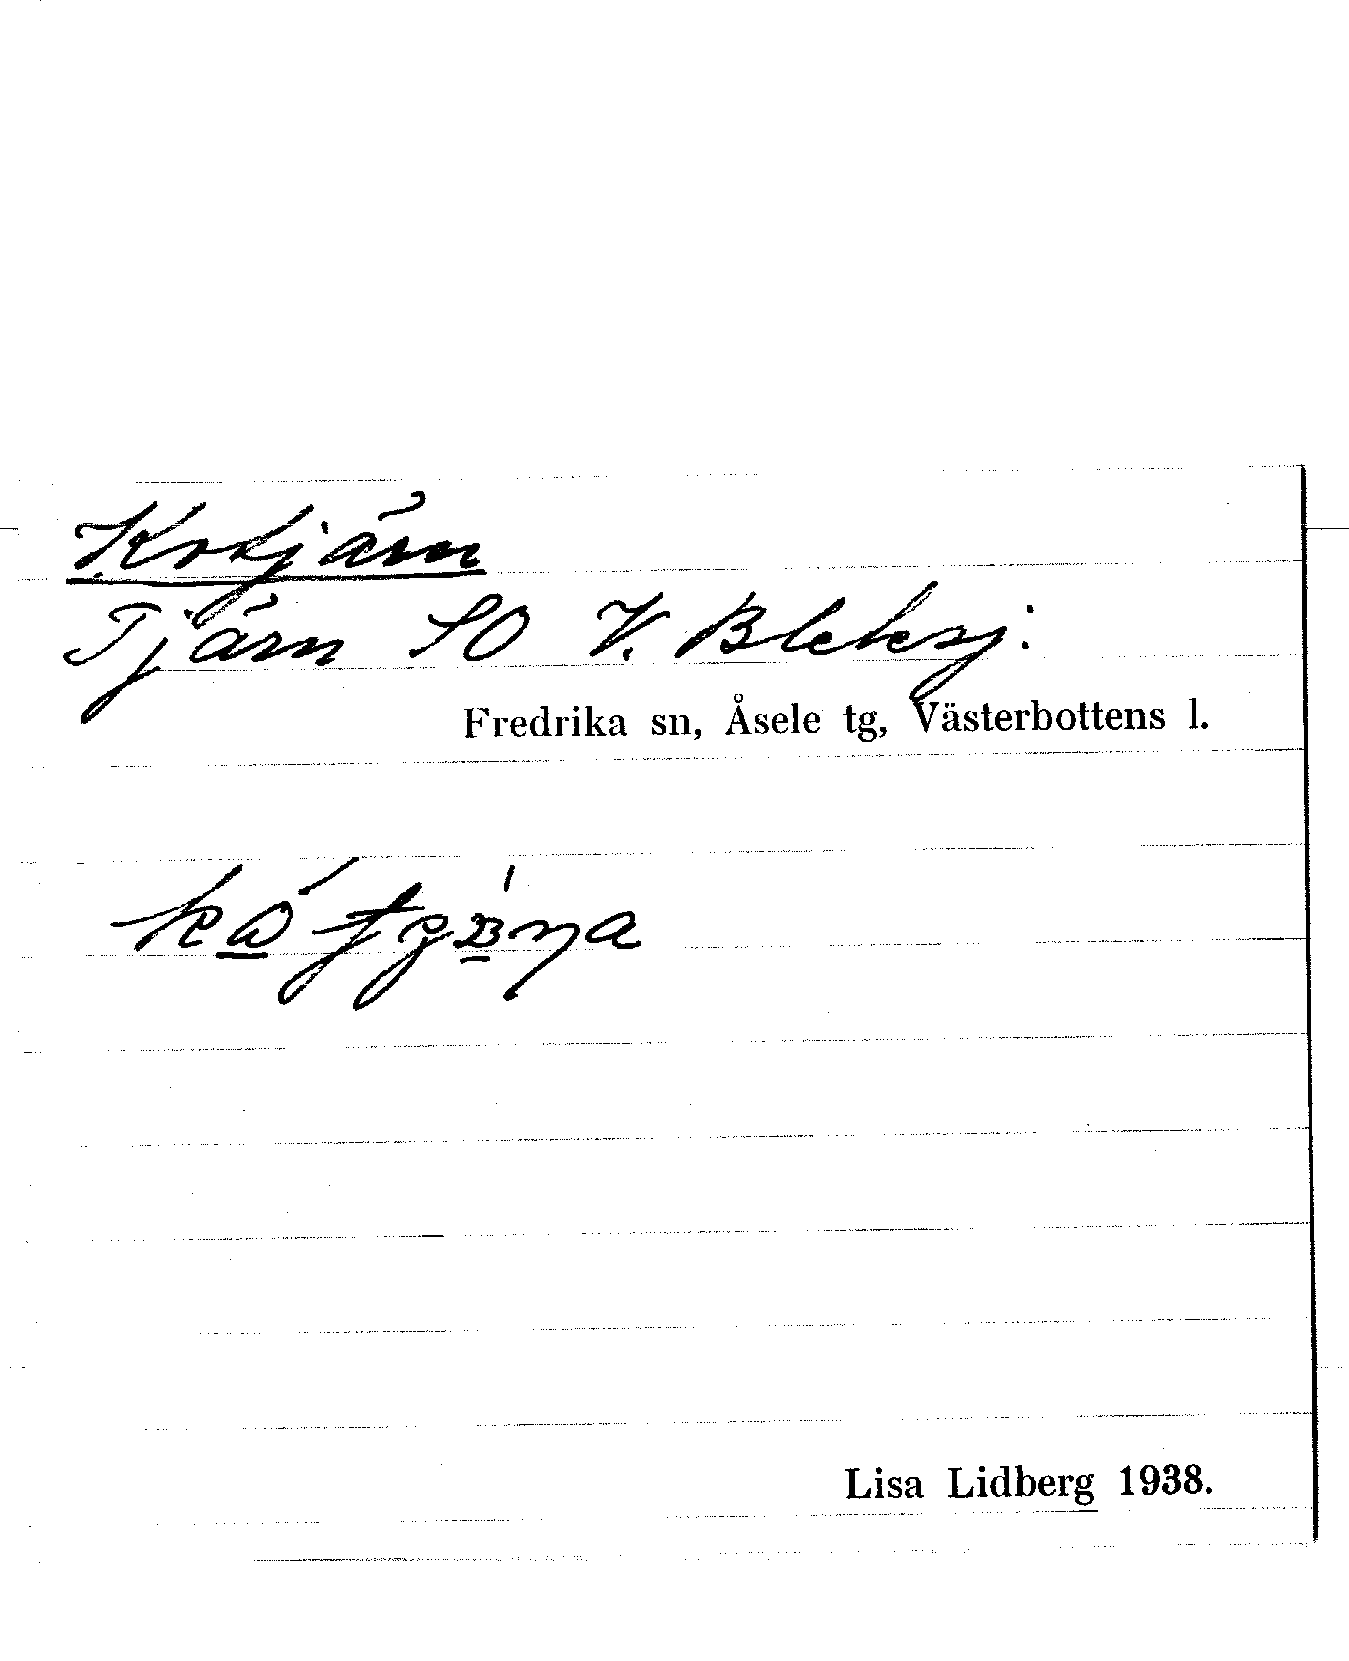 Kotjärn
Tjärn SO V. Bleksj.
Fredrika sn, Åsele tg, Västerbottens l.
Lisa Lidberg 1938.